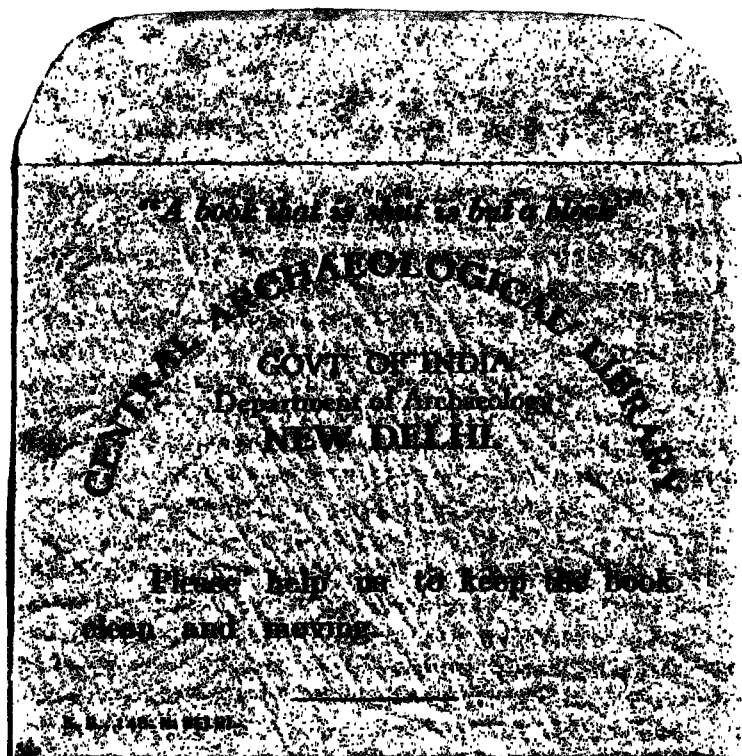 "A book that is shut is but a block"
CENTRAL ARCHAEOLOGICAL LIBRARY
GOVT. OF INDIA
Department of Archaeology
NEW DELHI.
Please help us to keep the book
clean and moving.
148. N. DELHI.